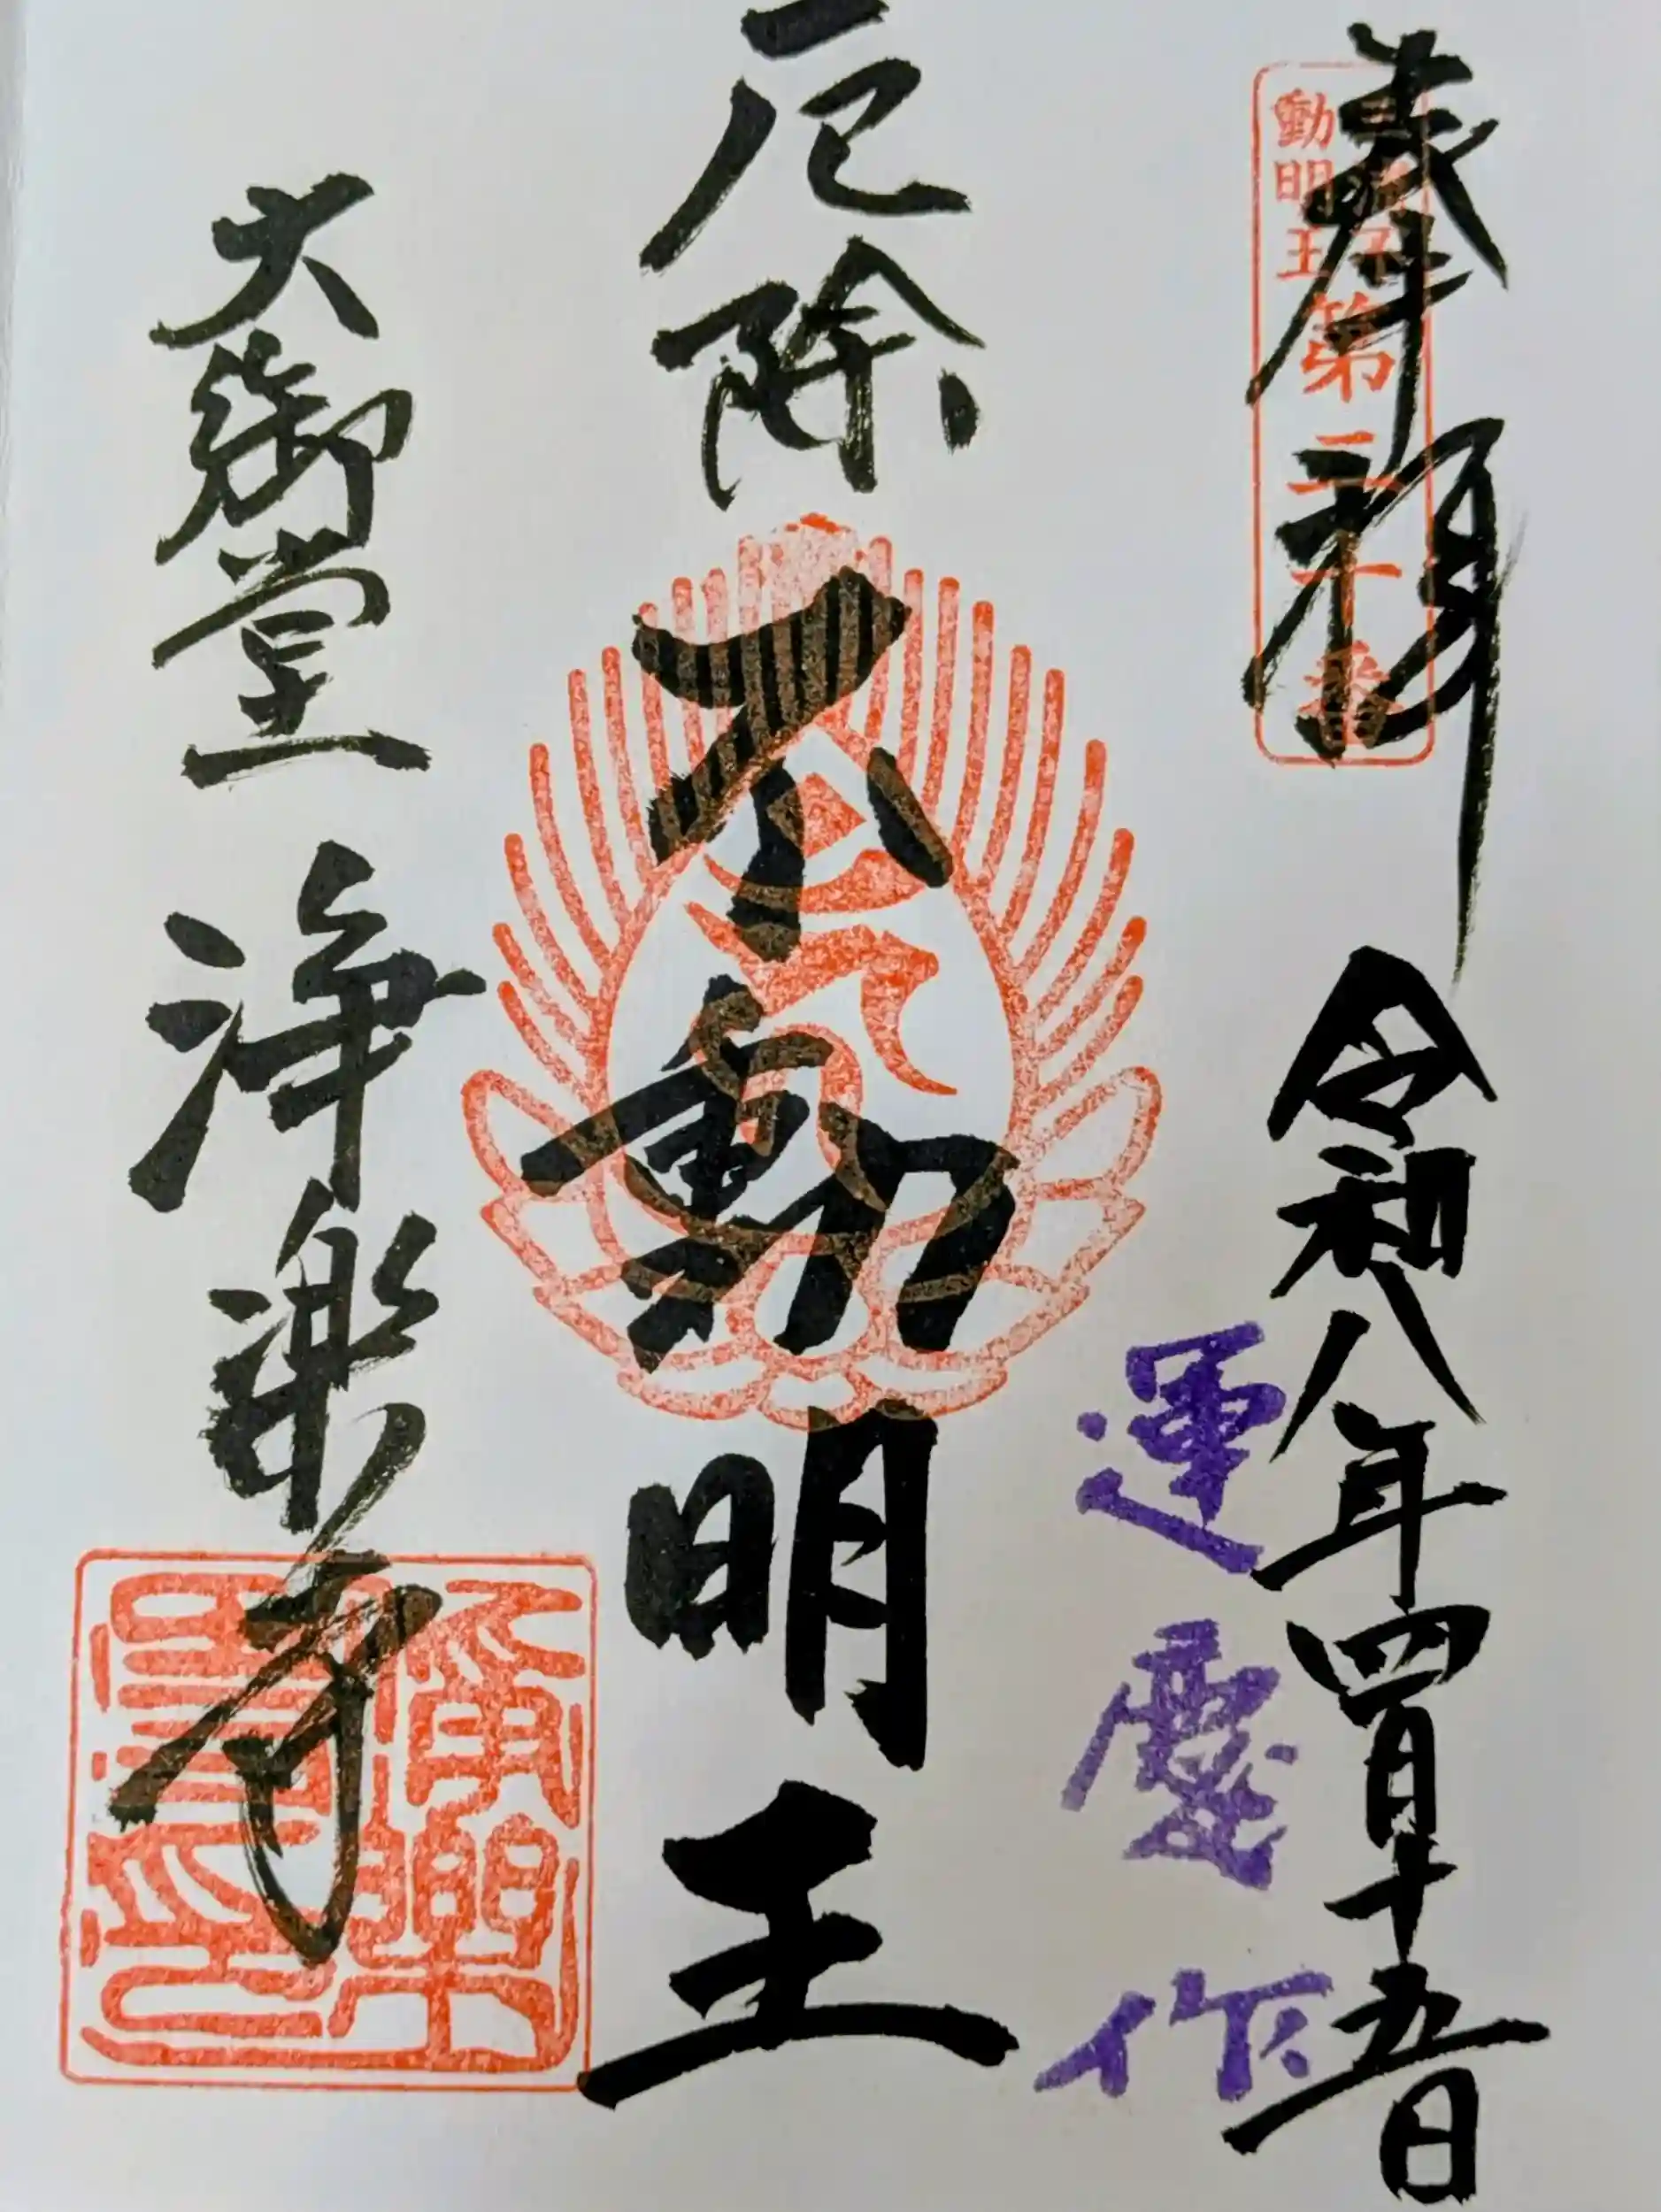 奉拝
令和八年四月十五日
動明王
第三十番
運慶作
厄除
不動明王
大御堂
浄楽寺